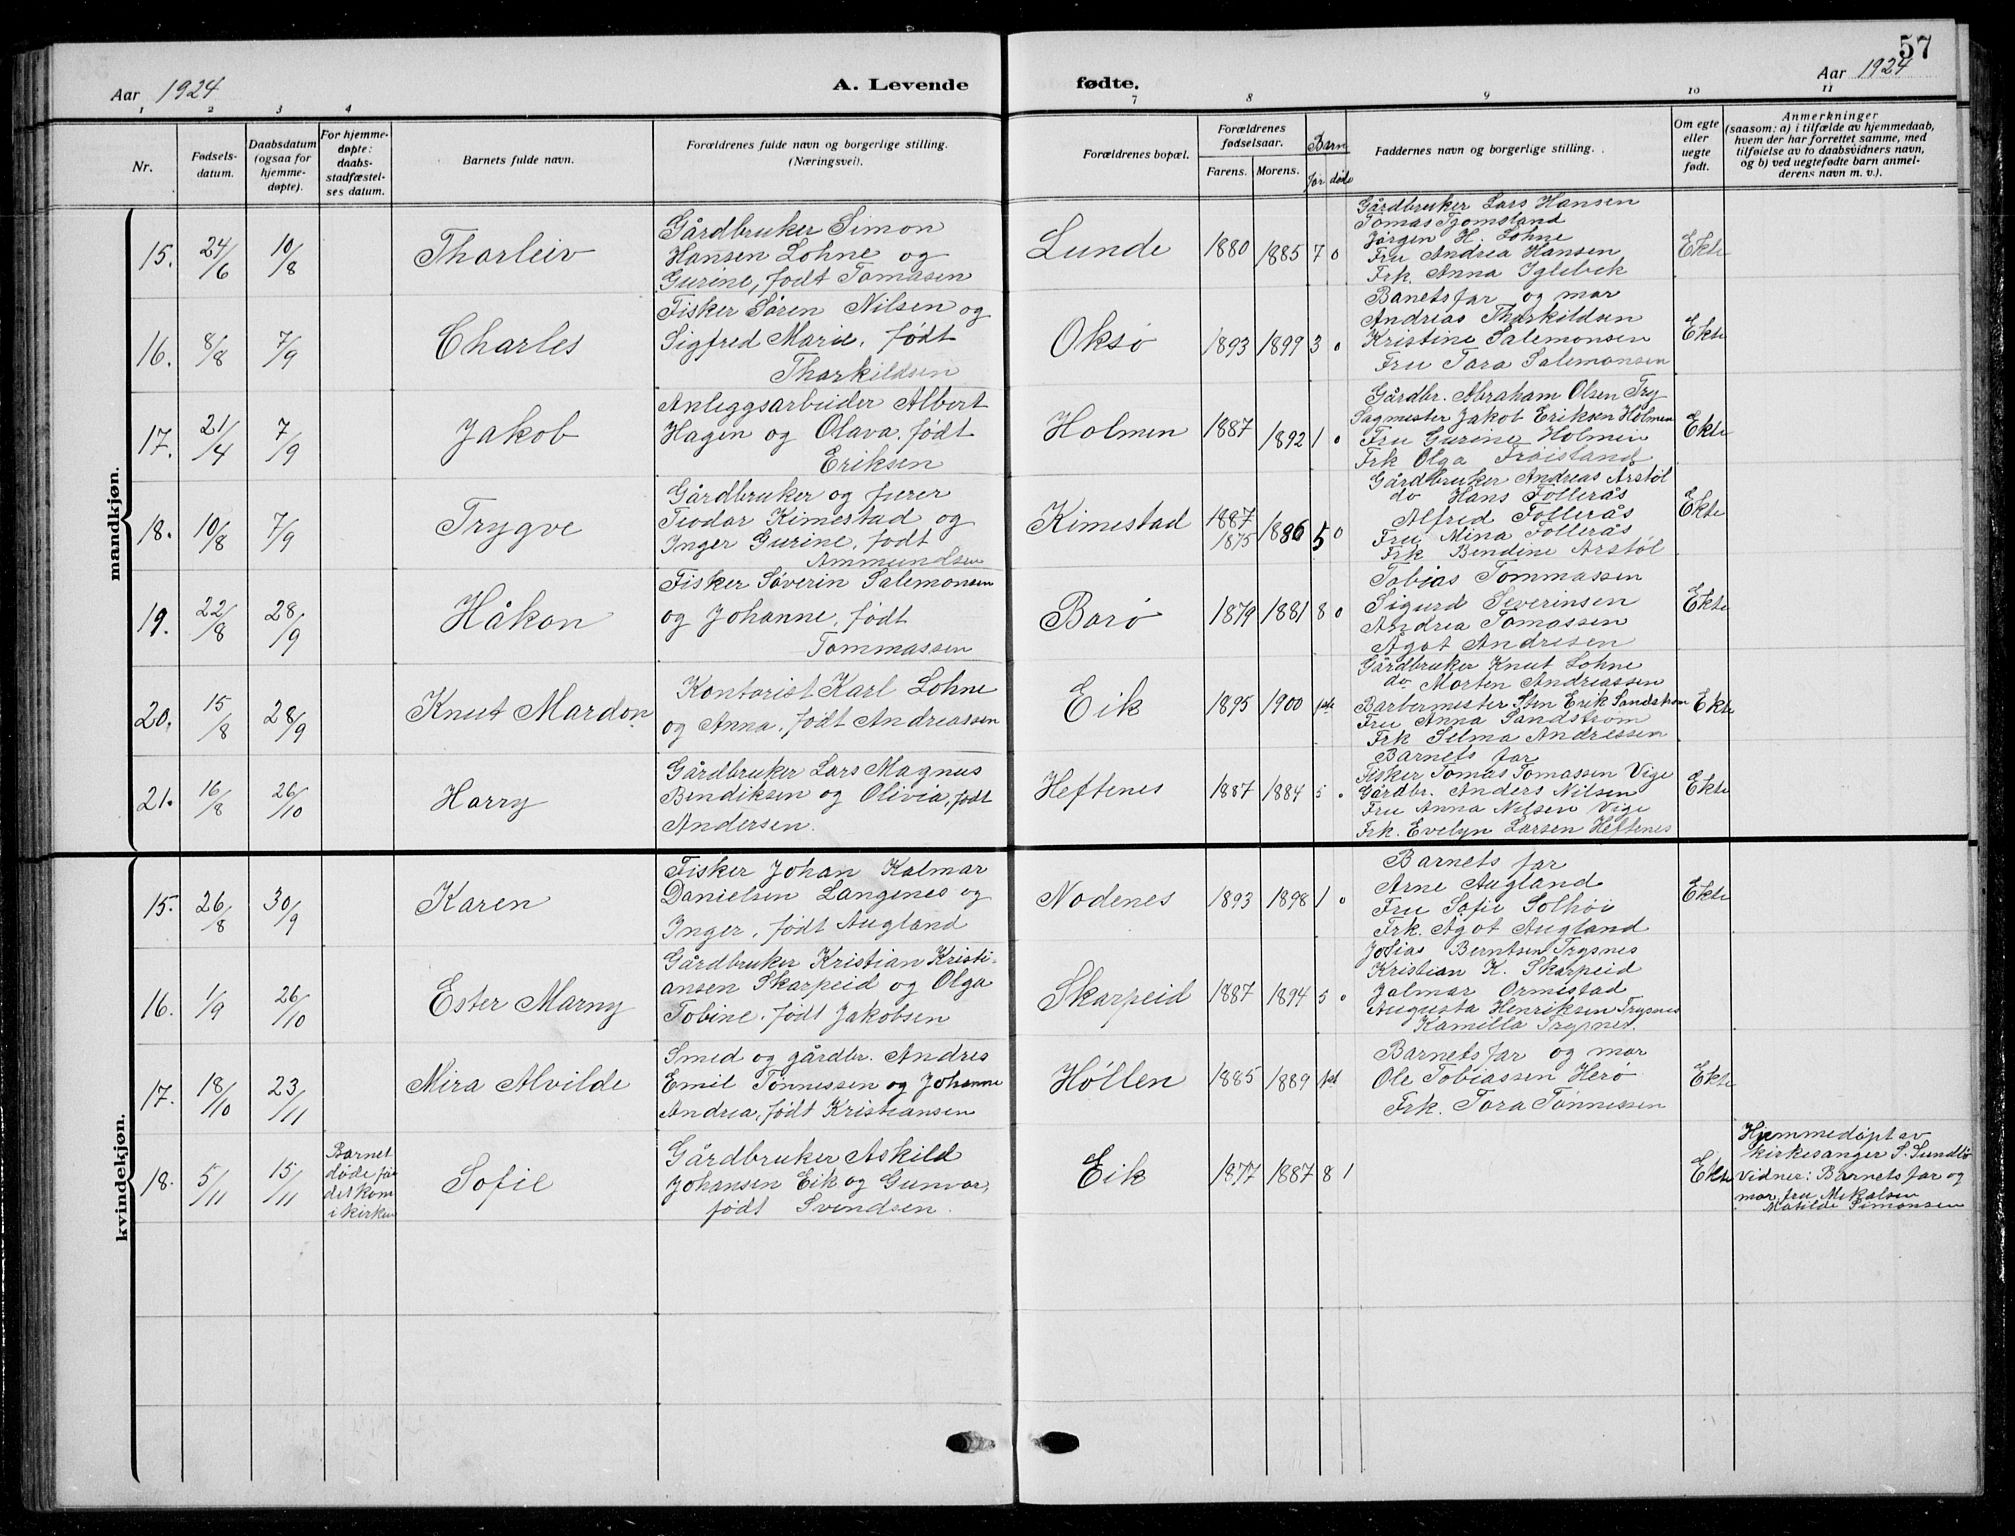 57
Aar 1924
A. Levende fødte.
Aar 1924
1 2 3 4 7 8 9 10 11
Nr.
Fødsels-
datum.
Daabsdatum
(ogsaa for
hjemme-
døpte).
For hjemme-
døpte:
daabs-
stadfæstel-
ses datum.
Barnets fulde navn.
Forældrenes fulde navn og borgerlige stilling.
(Næringsvei).
Forældrenes bopæl.
Forældrenes
fødselsaar.
Farens. Morens.
Barn
før døde
Faddernes navn og borgerlige stilling.
Om egte
eller
uegte
født.
Anmerkninger
(saasom: a) i tilfælde av hjemmedaab,
hvem der har forrettet samme, med
tilføielse av to daabsvidners navn,
og b) ved uegtefødte barn anmel-
derens navn m. v.).
mandkjøn.
15. 24/6 10/8 Tharleiv
Gårdbruker Simon
Hansen Lohne og
Gurine, født Tomasen
Lunde 1880 1885 7 0
Gårdbruker Lars Hansen
Tomas Tjomsland
Jørgen H. Lohne
Fru Andrea Hansen
Frk. Anna Iglebek
Ekte
16. 8/8 7/9 Charles
Fisker Søren Nilsen og
Sigfred Marie, født
Tharkildsen
Oksø 1893 1899 3 0
Banets far og mor
Andreas Tharkildsen
Kristine Salemonsen
Fru Tara Salemonsen
Ekte
17. 21/4 7/9 Jakob
Anleggsarbeider Albert
Hagen og Olava, født
Eriksen
Holmen 1887 1892 1 0
Gårdbr. Abraham Olsen Try
Sagmester Jakob Eriksen Holmen
Fru Gurine Holmen
Frk Olga Frøisland
Ekte
18. 10/8 7/9 Trygve
Gårdbruker og furer
Teodor Kimestad og
Inger Gurine, født
Ammundsen
Kimestad 1887 1875 1886 5 0
Gårdbruker Andreas Arstøl
do Hans Follerås
Alfred Follerås
Fru Mina Follerås
Frk Bendene Arstøl
Ekte
19. 22/8 28/9 Håkon
Fisker Søverin Salemonsen
og Johanne, født
Tommassen
Borø 1879 1881 8 0
Tobias Tommassen
Sigurd Severinsen
Andrea Tomassen
Agot Andresen
Ekte
20. 15/8 28/9 Knut Mardon
Kontorist Karl Lohne
og Anna, født Andreassen
Eik 1895 1900 1ste
Gårdbruker Knut Lohne
do Morten Andreassen
Barbermester Sten Erik Sandstrøm
Fru Anna Sandstrøm
Frk Selma Andressen
Ekte
21. 16/8 26/10 Harry
Gårdbruker Lars Magnus
Bendiksen og Olivia, født
Andersen.
Heftenes 1887 1884 5 0
Barnets far
Fisker Tomas Tomassen Vige
Gårdbr. Anders Nilsen
Fru Anna Nilsen Vige
Frk. Evelyn Larsen Heftenes
Ekte
kvindekjøn.
15. 26/8 30/9 Karen
Fisker Johan Kalmar
Danielsen Langenes og
Inger, født Augland
Nodenes 1893 1898 1 0
Barnets far
Arne Augland
Fru Sofie Solhøi
Frk. Agot Augland
Ekte
16. 1/9 26/10 Ester Marny
Gårdbruker Kristian Kristi-
ansen Skarpeid og Olga
Tobine, født Jakobsen
Skarpeid 1887 1894 5 0
Josias Berntsen Trysnes
Kristian K. Skarpeid
Jalmar Ormestad
Augusta Henriksen Trysnes
Kamilla Trysnes.
17. 18/10 23/11 Mira Alvilde
Smed og gårdbr. Andres
Emil Tønnessen og Johanne
Andrea, født Kristiansen
Høllen 1885 1889 1ste
Barnets far og mor
Ole Tobiassen Herø
Frk. Tora Tønnessen
Ekte
18. 5/11 15/11
Barnet
døde før
det kom
i kirken
Sofie
Gårdbruker Askild
Johansen Eik og Gunvor,
født Svendsen.
Eik 1877 1887 8 1
Ekte
Hjemmedøpt av
kirkesanger S. Sundbø
Vidner: Barnets far og
mor, fru Mikalsen
Matilde Simonsen